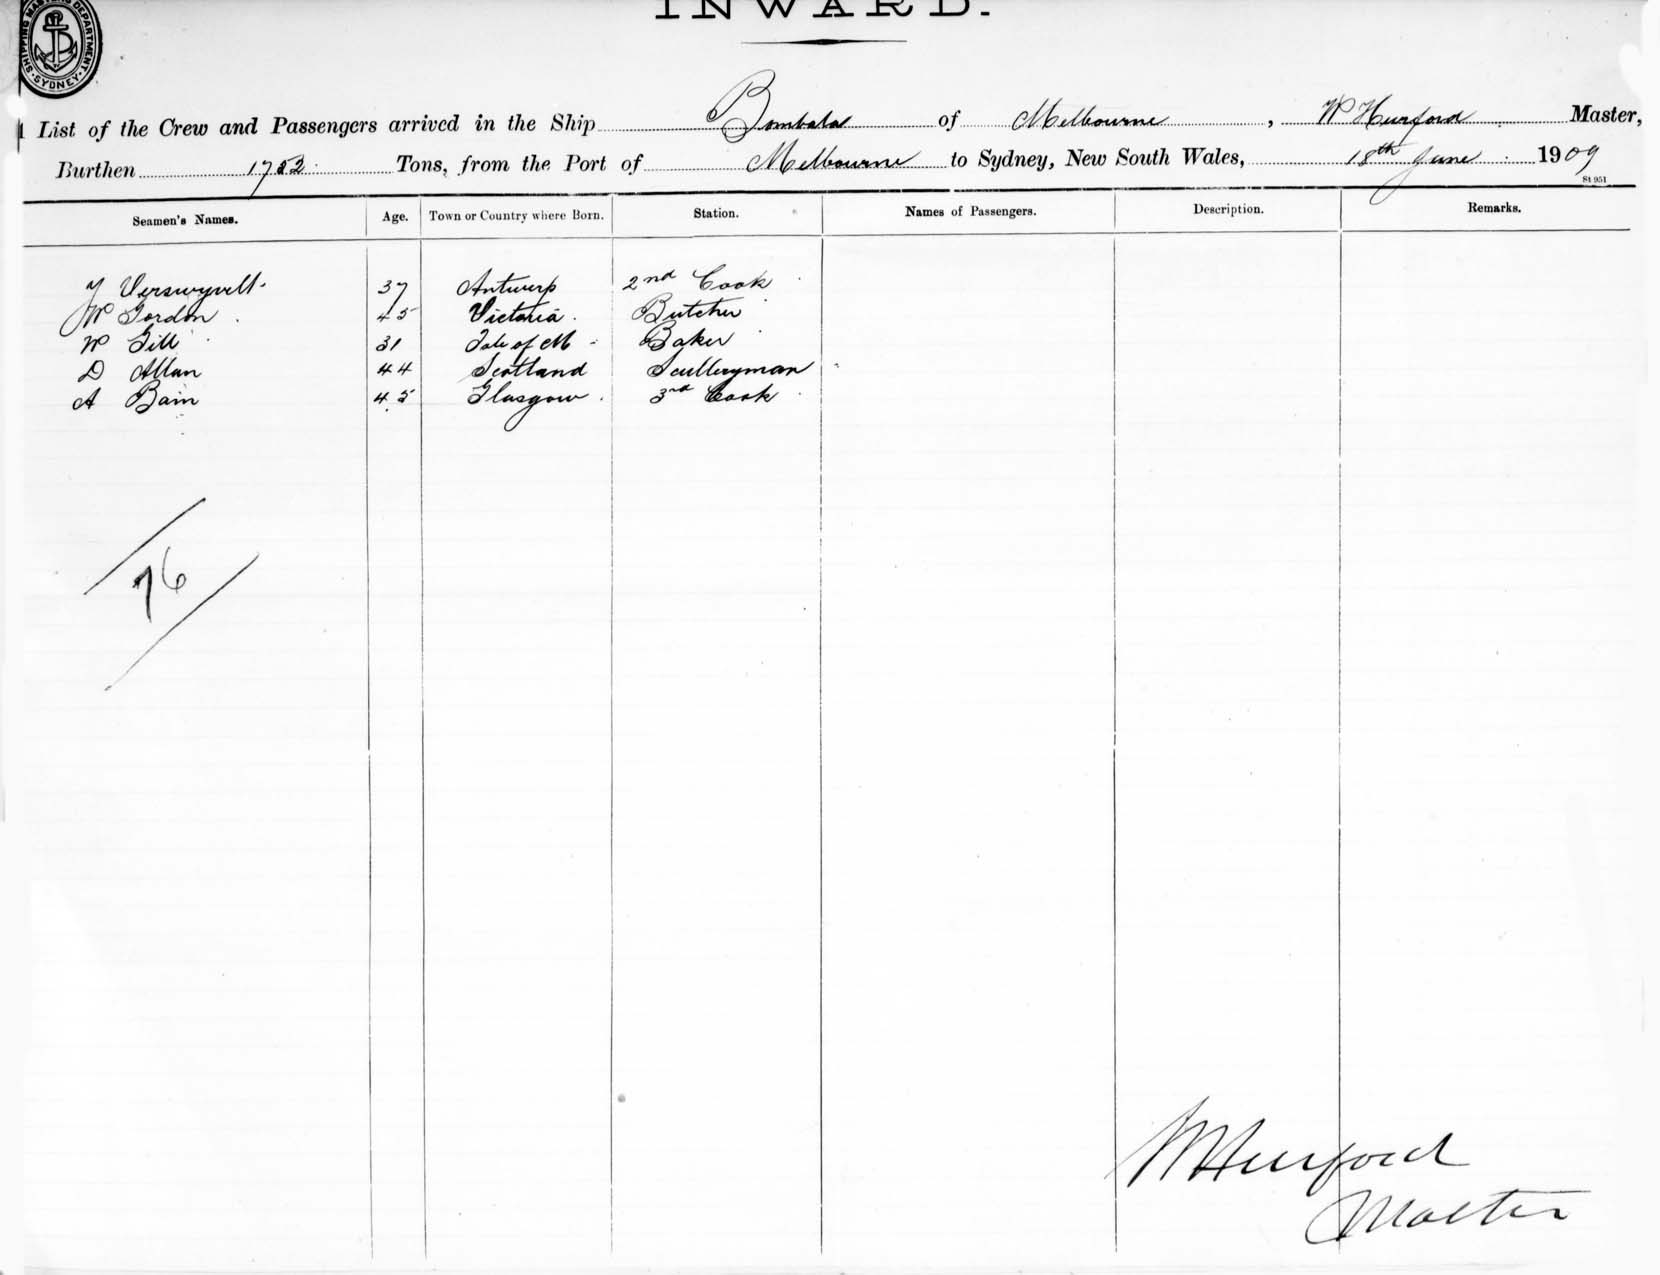 INWARD.
SHIPPING MASTERS DEPARTMENT. SYDNEY.
List of the Crew and Passengers arrived in the Ship Bombala of Melbourne, W Hurford Master,
Burthen 1752 Tons, from the Port of Melbourne to Sydney, New South Wales, 18th June 1909
St 951
Seamen's Names. Age. Town or Country where Born. Station. Names of Passengers. Description. Remarks.
37 Antwerp 2nd Cook
W Gordon 45 Victoria Butcher
W Gill 31 Isle of M Baker
D Allan 44 Scotland Sculleryman
A Bain 45 Glasgow 3rd Cook
76
W Hurford
Master